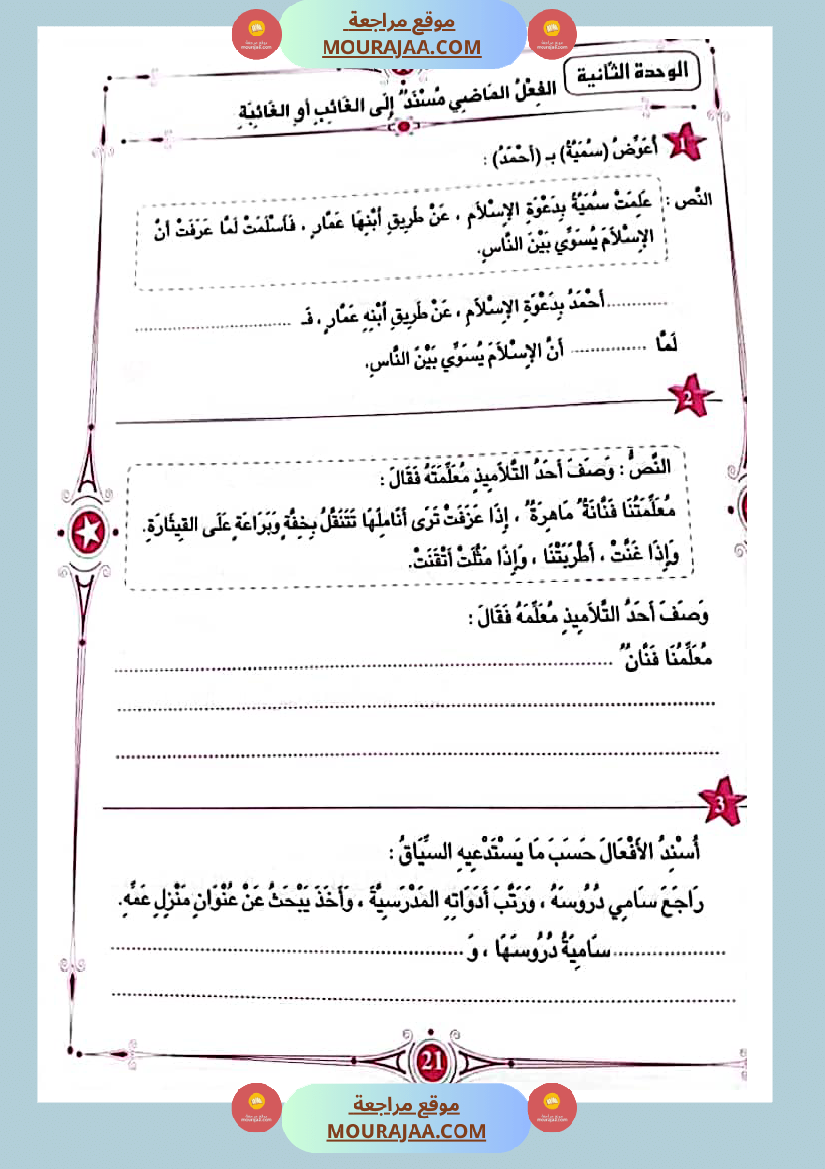 موقع مراجعة
MOURAJAA.COM
الوحدة الثانية
الفِعْلُ المَاضِي مُسْنَدٌ إِلَى الغَائِبِ أَوِ الغَائِبَةِ
1
أُعَوِّضُ (سُمَيَّةُ) بـ (أَحْمَدُ) :
النَّص : عَلِمَتْ سُمَيَّةُ بِدَعْوَةِ الإِسْلاَمِ ، عَنْ طَرِيقِ ٱبْنِهَا عَمَّارٍ ، فَأَسْلَمَتْ لَمَّا عَرَفَتْ أَنَّ
الإِسْلاَمَ يُسَوِّي بَيْنَ النَّاسِ.
............أَحْمَدُ بِدَعْوَةِ الإِسْلاَمِ ، عَنْ طَرِيقِ ٱبْنِهِ عَمَّارٍ ، فَـ ..............................
لَمَّا ............... أَنَّ الإِسْلاَمَ يُسَوِّي بَيْنَ النَّاسِ.
2
النَّصُّ : وَصَفَ أَحَدُ التَّلاَمِيذِ مُعَلِّمَتَهُ فَقَالَ :
مُعَلِّمَتُنَا فَنَّانَةٌ مَاهِرَةٌ ، إِذَا عَزَفَتْ تَرَى أَنَامِلَهَا تَتَنَقَّلُ بِخِفَّةٍ وَبَرَاعَةٍ عَلَى القِيثَارَةِ.
وَإِذَا غَنَّتْ ، أَطْرَبَتْنَا ، وَإِذَا مَثَّلَتْ أَتْقَنَتْ.
وَصَفَ أَحَدُ التَّلاَمِيذِ مُعَلِّمَهُ فَقَالَ :
مُعَلِّمُنَا فَنَّانٌ ................................................
3
أُسْنِدُ الأَفْعَالَ حَسَبَ مَا يَسْتَدْعِيهِ السِّيَاقُ :
رَاجَعَ سَامِي دُرُوسَهُ ، وَرَتَّبَ أَدَوَاتِهِ المَدْرَسِيَّةَ ، وَأَخَذَ يَبْحَثُ عَنْ عُنْوَانِ مَنْزِلِ عَمِّهِ.
......................سَامِيَةُ دُرُوسَهَا ، وَ ................................................
21
موقع مراجعة
MOURAJAA.COM